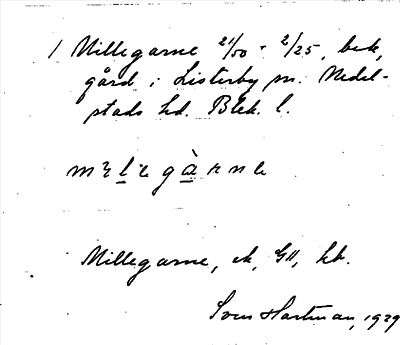 1 Millegarne 21/50 - 2/25, bek,
gård i Listerby sn. Medel-
stads hd. Blek. l.
Millegarne, ek, GII, hd.
Sven Hartman, 1929